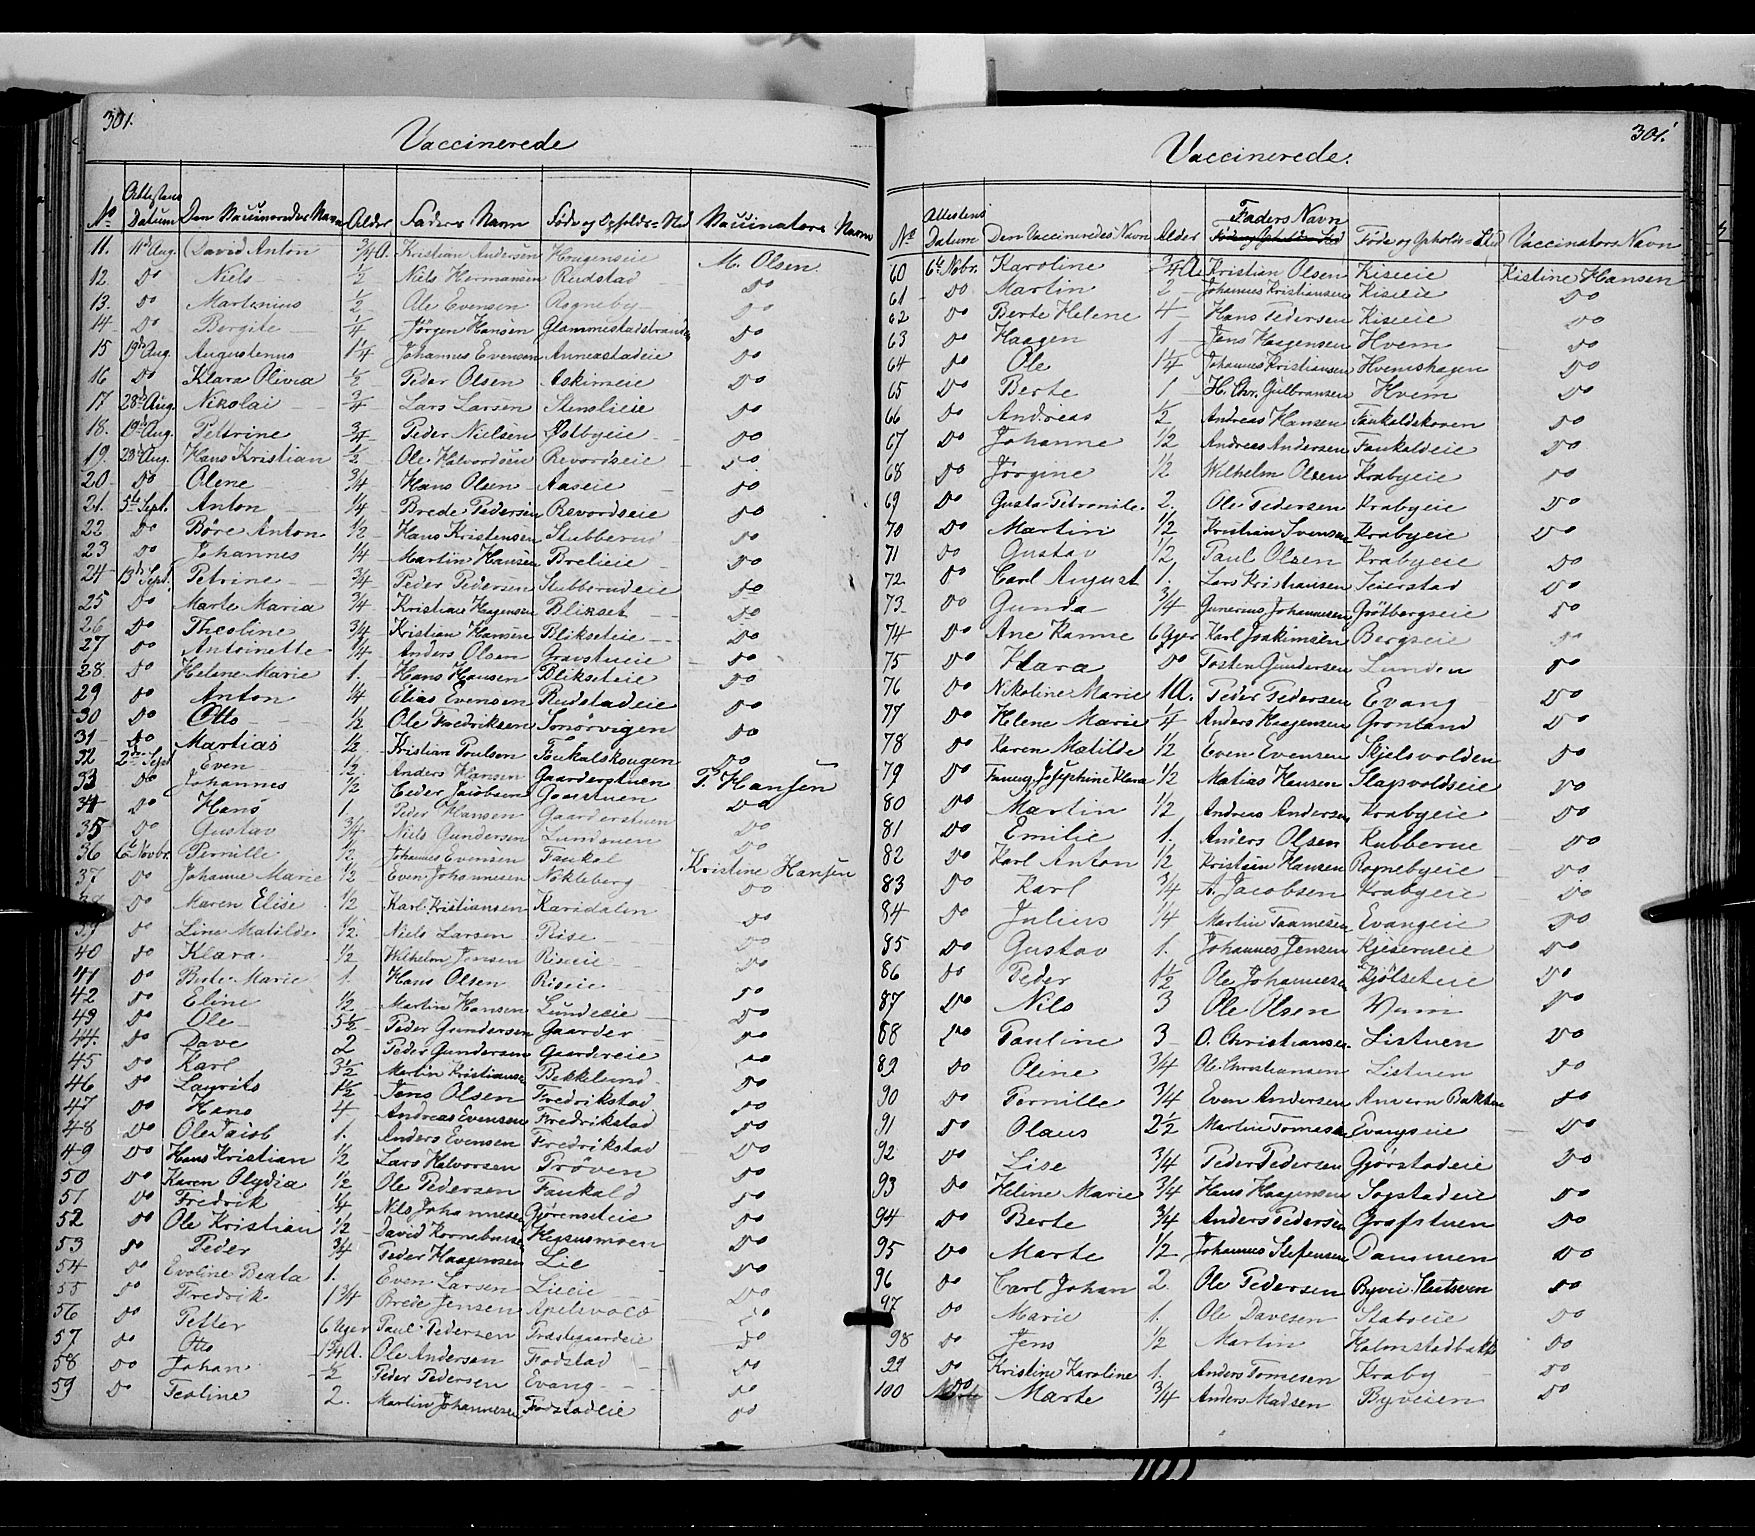 301.
Vaccinerede
No Attestens Datum Den Vaccineredes Navn Alder Faders Navn Føde og Opholds=Sted Vaccinators Navn
11. 11te Aug. David Anton 3/4 A. Kristian Andersen Haugenseie M. Olsen.
12. Do Niels 1/2 Niels Hermansen Rudstad Do
13. Do Martinius 1/2 Ole Evensen Rogneby Do
14 Do Bergite 1/4 Jørgen Hansen Glammestadsbraaden Do
15 19de Aug. Augustinus 1 1/4 Johannes Evensen Anneastadeie Do
16 Do Klara Olivia 1/2 Peder Olsen Askimeie Do
17 28de Aug. Nikolai 3/4 Lars Larsen Stenslieie Do
18. 19de Aug. Pettrine 3/4 Peder Nielsen Østbyeie Do
19. 28de Aug. Hans Kristian 1/2 Ole Halvordsen Revordseie Do
20 Do Olene 3/4 Hans Olsen Aaseie Do
21. 5te Sept. Anton 1/4 Brede Pedersen Revordseie Do
22 Do Børe Anton 1/2 Hans Kristensen Stubberud Do
23 Do Johannes 1/4 Martin Hansen Brelieie Do
24 13de Sept. Petrine 3/4 Peder Pedersen Stubberudeie Do
25 Do Marte Maria 3/4 Kristian Haagensen Blikset Do
26 Do Theoline 3/4 Kristian Hansen Blikseteie Do
27 Do Antoinette 1/4 Anders Olsen Gravstueie Do
28 Do Helene Marie 1. Hans Hansen Blikseteie Do
29 Do Anton 1/4 Elias Evensen Rudstadeie Do
30 Do Otto 1/2 Ole Fredriksen Smørvigen Do
31 Do Martias 1/2 Kristian Poulson Foukalskougen Do
32 2den Sept Even 1/2 Anders Hansen Gaarderstuen P. Hansen
33 Do Johannes 1/2 Peder Jacobsen Gaarstuen Do
34 Do Hans 1. Peder Hansen Gaarderstuen Do
35 Do Gustav 3/4 Niels Gundersen Lundsuen Do
36 6te Novbr. Pernille 1/2 Johannes Evensen Faukal Kristine Hansen
37 Do Johanne Marie 1/2 Even Johannesen Nøkleberg Do
38 Do Maren Elise 1/2 Karl Kristiansen Karidalen Do
39 Do Line Matilde 1/2 Niels Larsen Rise Do
40 Do Klara 1/2 Wilhelm Jensen Riseie Do
41 Do Berte Marie 1. Hans Olsen Riseie Do
42 Do Eline 1/2 Martin Hansen Lundeeie Do
43 Do Ole 5 1/2 Peder Gundersen Gaarder Do
44. Do Dave 2 Peder Gundersen Gaardereie Do
45 Do Karl 3 1/2 Martin Kristiansen Bekkelund Do
46 Do Laurits 1 1/2 Jens Olsen Fredrikstad Do
47 Do Hans 4 Andreas Evensen Fredrikstad Do
48 Do Ole Jacob 1. Anders Evensen Fredrikstad Do
49 Do Hans Kristian 1/2 Lars Halvorsen Prøven Do
50 Do Karen Olydia 1/2 Ole Pedersen Faukald Do
51 Do Fredrik 1/4 Nils Johannesen Gjørenseteie Do
52 Do Ole Kristian 1/2 David Kornelius Do
53 Do Peder 3/4 Peder Haagensen Lie Do
54 Do Evoline Beata 1. Even Larsen Lieeie Do
55 Do Fredrik 1 3/4 Brede Jensen Apelsvold Do
56 Do Petter 6 Uger Paul Pedersen Præstegaardeie Do
57 Do Otto 1 3/4 A. Ole Andersen Fodstad Do
58 Do Johan 1/2 Peder Pedersen Evang Do
59 Do Teoline 2. Martin Johannesen Fodstadeie Do
301.
Vaccinerede.
No Attestens Datum Den Vaccineredes Navn Alder Faders Navn Føde og Opholds=Sted Vaccinators Navn
60 6te Nobr. Karoline 3/4 A. Kristian Olsen Kiseeie Kistine Hansen
61 Do Martin 2 Johannes Kristiansen Kiseeie Do
62 Do Berte Helene 4 Hans Pedersen Kiseeie Do
63 Do Haagen 1 Jens Haagensen Hvem Do
64 Do Ole 1 1/4 Johannes Kristiansen Hvemshagen Do
65 Do Berte 1 H. Chr. Gulbransen Hvem Do
66 Do Andreas 1/2 Andreas Hansen Faukaldskoven Do
67 Do Johanne 1/2 Andreas Andersen Faukaldeie Do
68 Do Jørgine 1/2 Wilhelm Olsen Krabyeie Do
69 Do Gusta Petronille. 2. Ole Pedersen Krabyeie Do
70 Do Martin 1/2 Kristian Svensen Krabyeie Do
71 Do Gustav 1/2 Paul Olsen Krabyeie Do
72 Do Carl August 1. Lars Kristiansen Seierstad Do
73 Do Gunda 3/4 Gunerius Johannesen Grøtbergseie Do
74 Do Ane Hanne 6 Uger Karl Joakimsen Bergseie Do
75 Do Klara Do Tosten Gundersen Lunden Do
76 Do Nikoline Marie 1 A. Peder Pedersen Evang Do
77 Do Helene Marie 1/4 Anders Haagensen Grønland Do
78 Do Karen Matilde 1/2 Even Evensen Skjelsvolden Do
79 Do Fanny Josephine Klara 1/2 Matias Hansen Slapvoldseie Do
80 Do Martin 1/2 Andreas Andersen Krabyeie Do
81 Do Emilie 1. Anders Olsen Rubberue Do
82 Do Karl Anton 1/2 Kristian Hansen Rognebyeie Do
83 Do Karl 3/4 A. Jacobsen Krabyeie Do
84 Do Julius 1/4 Martin Taamesen Evangeie Do
85 Do Gustav 1. Johannes Jensen Kjiserueie Do
86 Do Peder 1 1/2 Ole Johannesen Kjølseteie Do
87 Do Nils 3 Ole Olsen Do
88 Do Pauline 3 O. Christiansen Listuen Do
89 Do Oline 3/4 Ole Christiansen Listuen Do
90 Do Pernille 3/4 Even Andersen Anvern Bakken Do
91 Do Olaus 2 1/2 Martin Tomasen Evangseie Do
92 Do Lise 3/4 Peder Pedersen Gjørstadeie Do
93 Do Heline Marie 3/4 Hans Haagensen Sogstadeie Do
94 Do Berte 3/4 Anders Pedersen Grøfstuen Do
95 Do Marte 1/2 Johannes Stefensen Dammen Do
96 Do Carl Johan 2. Ole Pedersen Byveie Slaatsveen Do
97 Do Marie 1. Ole Davesen Stabseie Do
98 Do Jens 1/2 Martin Holmstadbakk Do
99 Do Kristine Karoline 1. Anders Tomesen Kraby Do
100 Do Marte 3/4 Anders Madsen Byveien Do